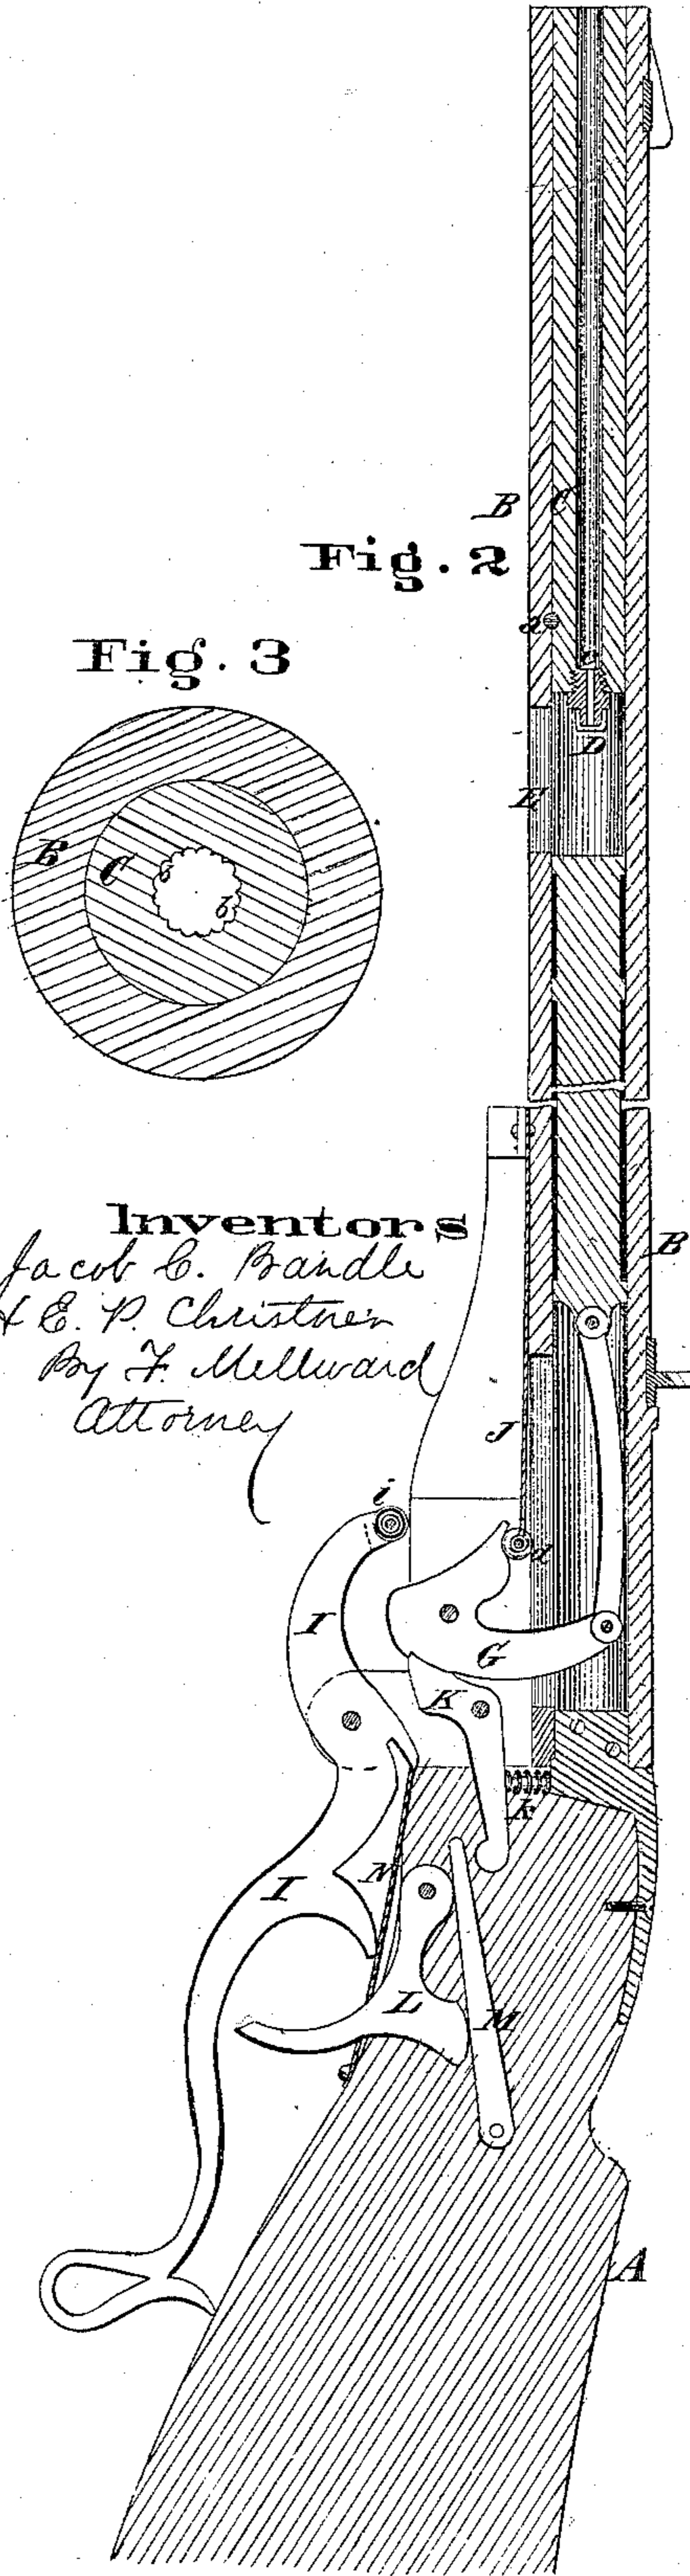 B C
Fig. 2
a
c
Fig. 3
D
E
B C b
b
Inventors
Jacob C. Bandle
& E. P. Christner
By F. Millward
Attorney
B
J
i
d
I
G
K
k
N
I
L
M
A